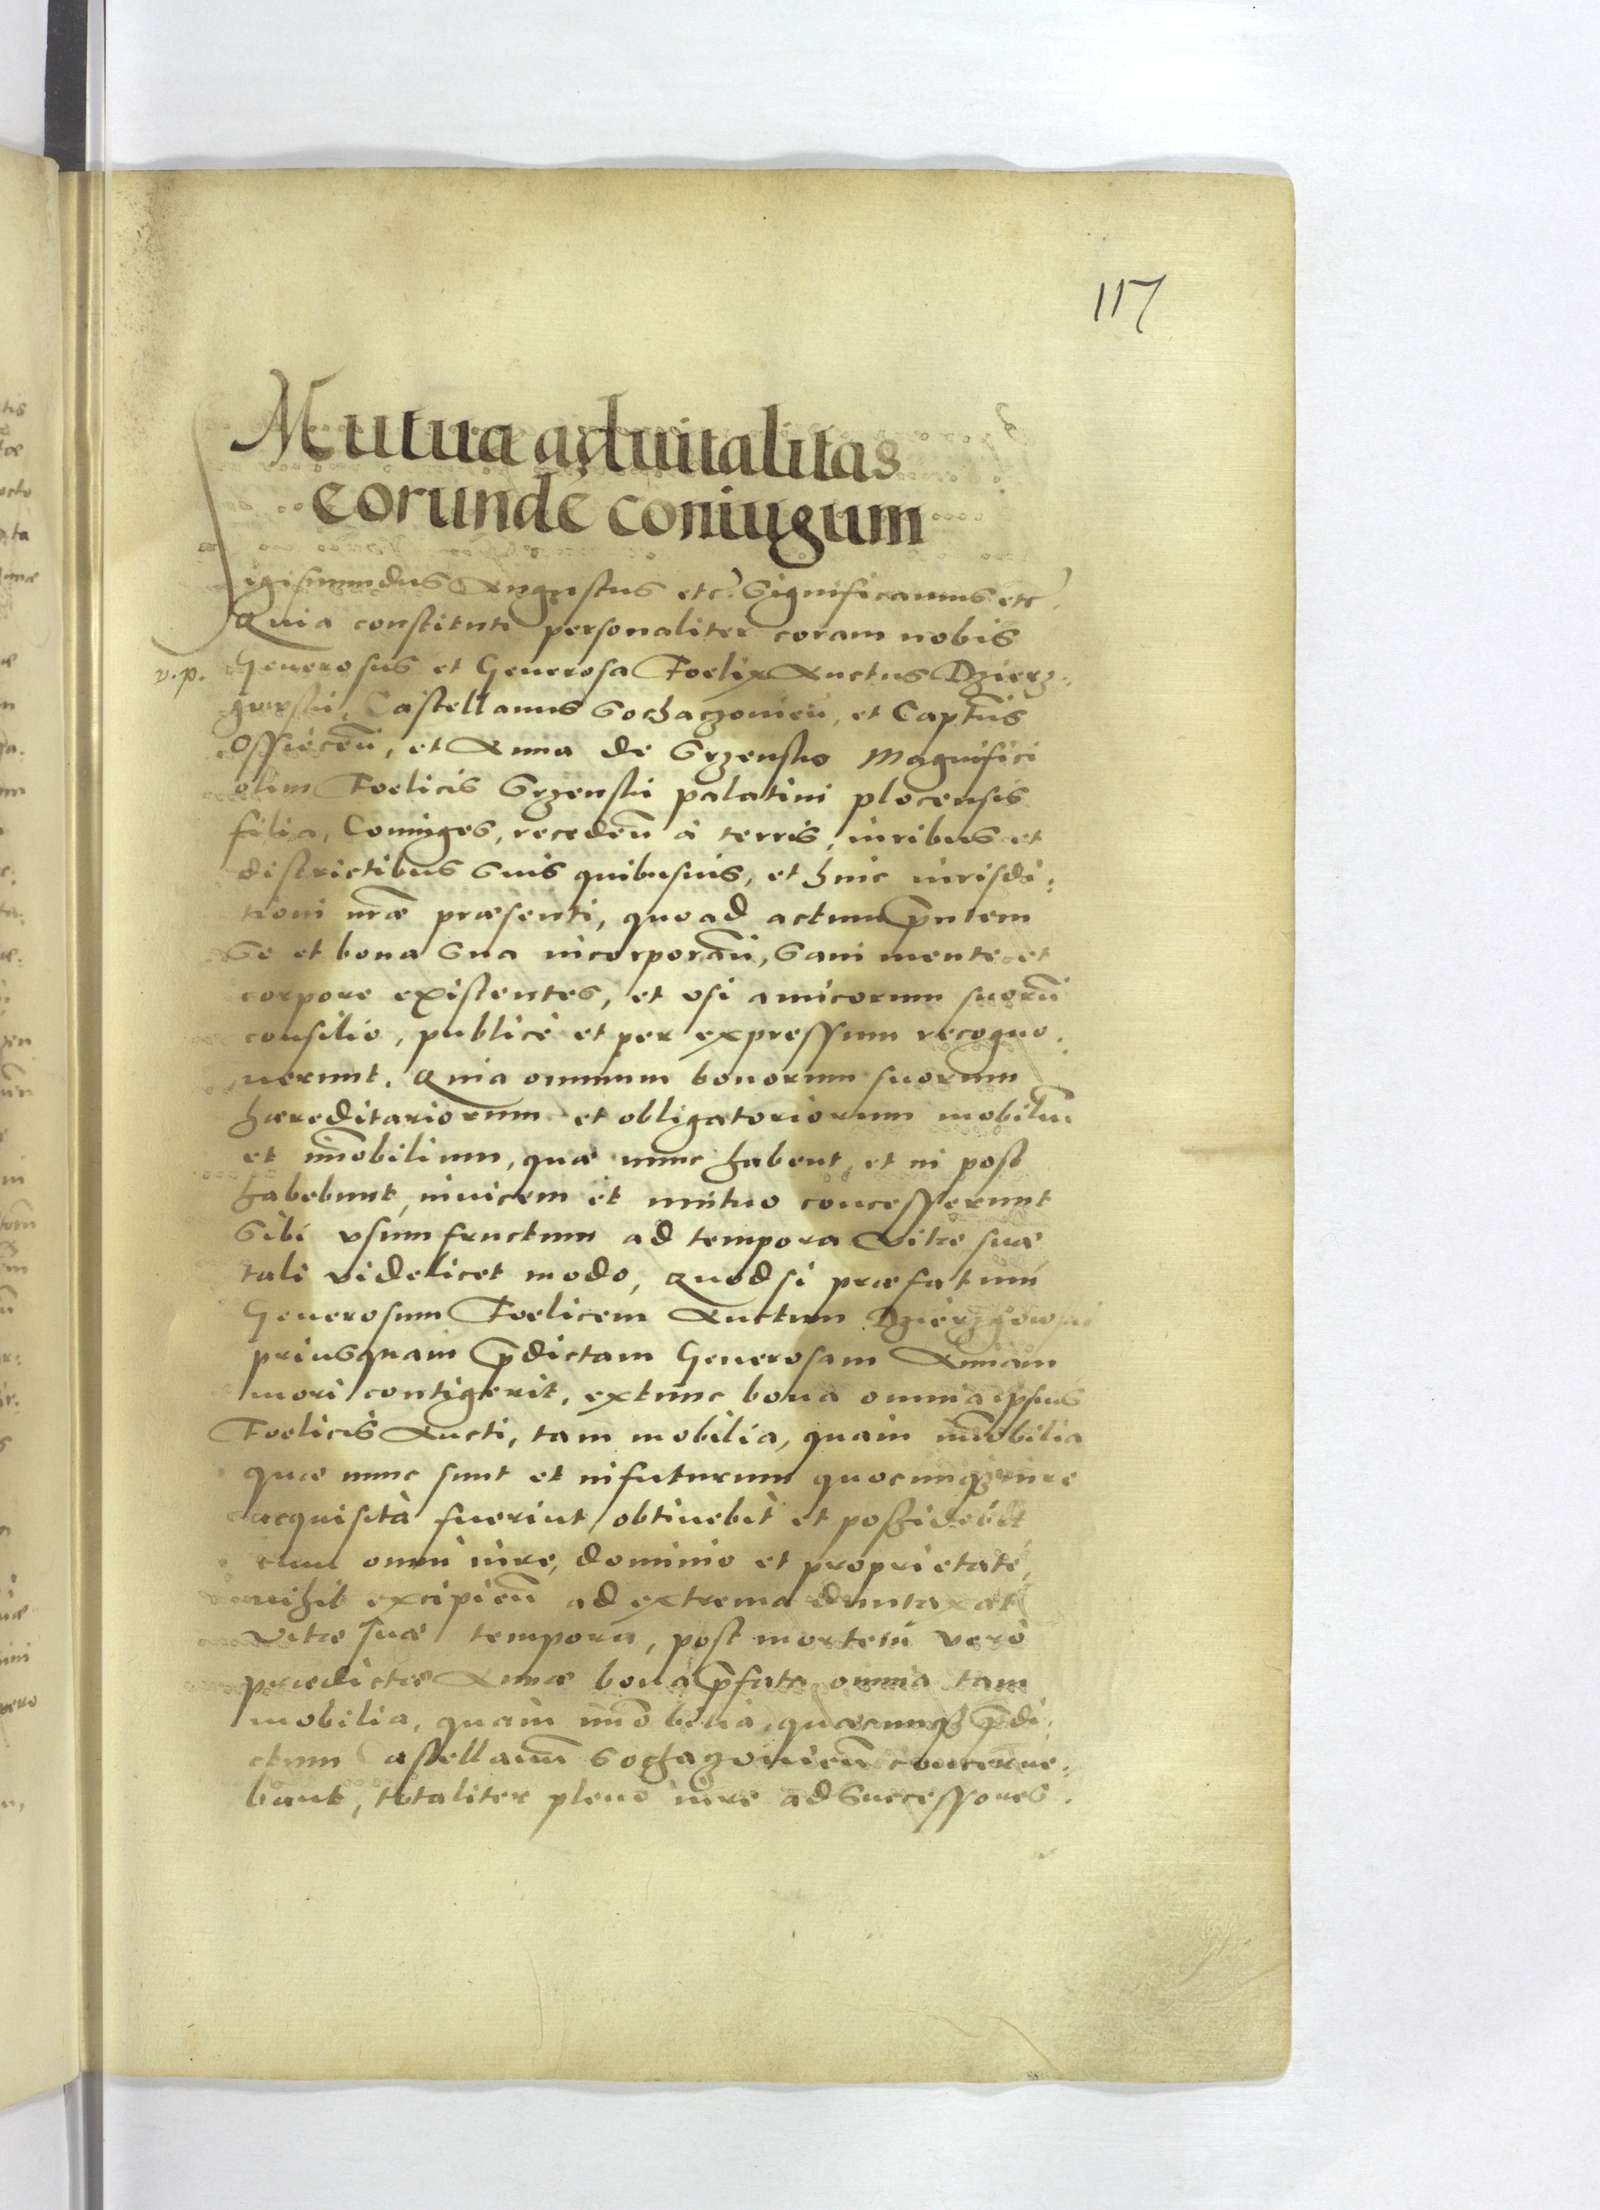 117
Mutua aduitalitas
eorundē coniugum
Sigismundus Augustus etc. Significamus etc.
Quia constituti personaliter coram nobis
v. p. Generosus et Generosa Foelix Auctus Dzierz-
gwski, Castellanus Sochaczouień, et Captus
Ossieceń, et Anna de Srzensko Magnifici
olim Foelicis Srzenski palatini plocensis
filia, Coniuges, recedeń à terris, iuribus et
districtibus suis quibusuis, et huic iurisdi:
tioni nrae praesenti, quo ad actum pntem
se et bona sua incorporań, sani mente et
corpore existentes, et vsi amicorum suorū
consilio, publicè et per expressum recogno.
uerunt. Quia omnium bonorum suorum
haereditariorum et obligatoriorum mobiliū
et imobilium, quae nunc habent, et in post
habebunt, inuicem et mutuo concesserunt
sibi vsumfructum ad tempora vitae suae
tali videlicet modo, Quod si praefatum
Generosum Foelicem Auctum Dzierzgowski
priusquam pdictam Generosam Annam
mori contigerit, extunc bona omnia ipsius
Foelicis Aucti, tam mobilia, quàm imobilia
quae nunc sunt et infuturum quocunqz iure
acquisita fuerint, obtinebit et possidebit
cum omni iure, dominio et proprietate,
nihil excipień ad extrema duntaxat
vitae suae tempora, post mortem verò
praedictae Annae bona pfata omnia tam
mobilia, quàm imobilia, quaecunqz pdi.
ctum Castellanū Sochaczouień concerne:
bant, totaliter pleno iure ad successores.